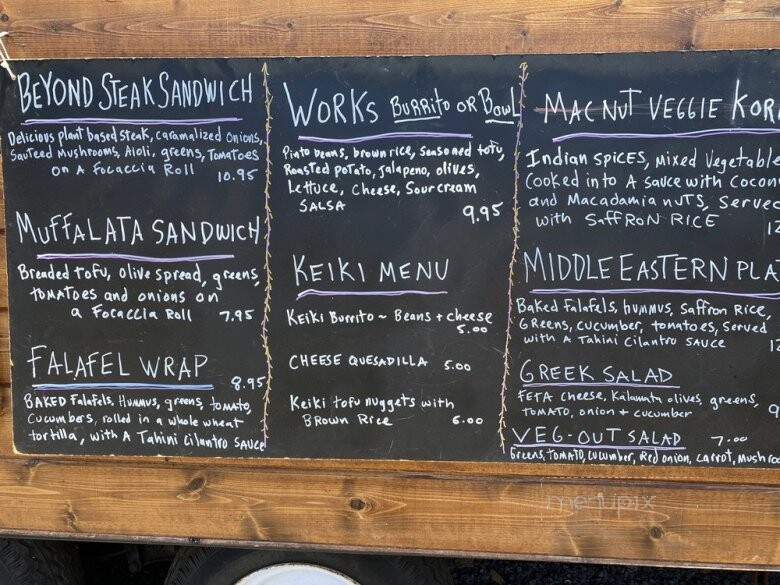 BEYOND STEAK SANDWICH
Delicious plant based steak, caramalized onions,
Sauteed Mushrooms, Aioli, greens, Tomatoes
on A Focaccia Roll 10.95
MUFFALATA SANDWICH
Breaded tofu, olive spread, greens,
tomatoes and onions on
a Focaccia Roll 7.95
FALAFEL WRAP
8.95
BAKED Falafels, Hummus, greens, tomato,
Cucumbers, rolled in a whole wheat
tortilla, with A Tahini Cilantro sauce
WORKS BURRITO OR BOWL
Pinto beans, brown rice, seasoned tofu,
Roasted potato, jalapeno, olives,
Lettuce, Cheese, Sour cream
SALSA
9.95
KEIKI MENU
Keiki Burrito ~ Beans + cheese
5.00
CHEESE QUESADILLA 5.00
Keiki tofu nuggets with
BROWN Rice 6.00
MAC NUT VEGGIE KOR
Indian spices, mixed vegetable
Cooked into A sauce with Cocon
and Macadamia nuts, Served
with SAFFRON RICE
12
MIDDLE EASTERN PLA
Baked Falafels, hummus, Saffron Rice,
Greens, cucumber, tomatoes, served
with A Tahini Cilantro sauce
12
GREEK SALAD
FETA cheese, Kalamata olives, greens,
TOMATO, onion + cucumber
9
VEG-OUT SALAD 7.00
Greens, TOMATO, cucumber, Red onion, carrot, Mushroo
menupix